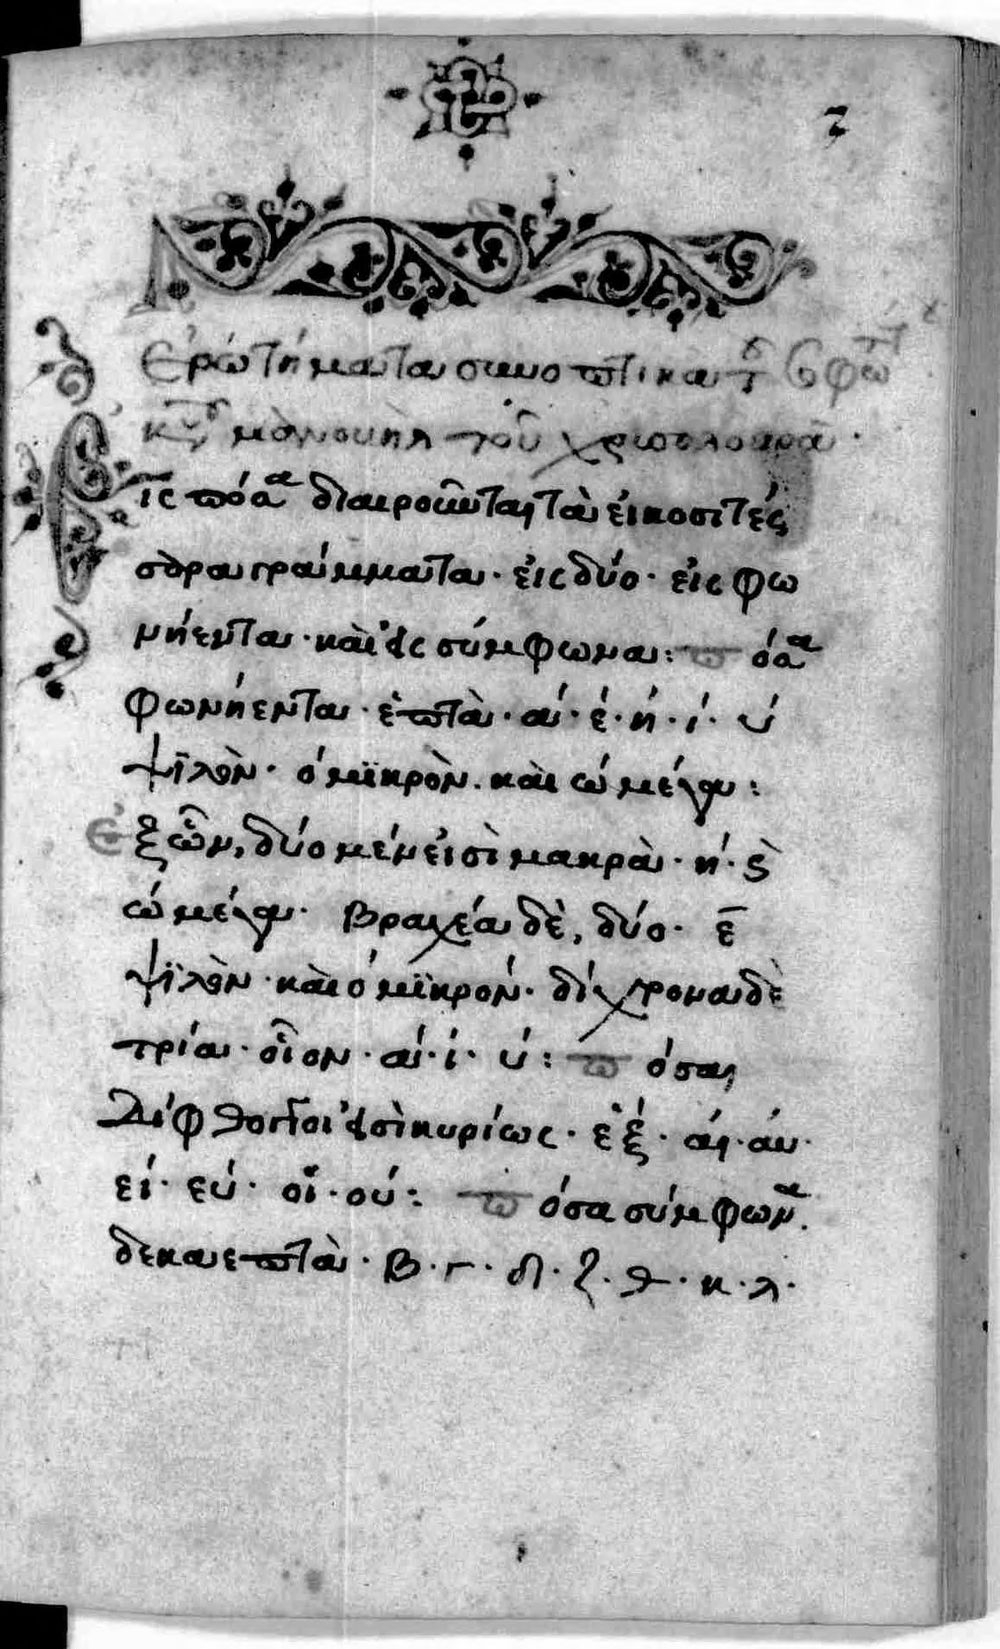 2
Ἐρώτήματα συνοπτικὰ τοῦ σοφωτ
κυροῦ μανουὴλ τοῦ χρυσολουρᾶ.
Εἰς πόσα διαιροῦνται τὰ εἰκοσιτέσ
σαρα γράμματα· εἰς δύο· εἰς φω
νήεντα· καὶ εἰς σύμφωνα: πόσα
φωνήεντα· ἑπτὰ· α· ε· η· ι· υ
ψϊλὸν· ὁ μϊκρὸν. καὶ ὠ μέγα:
Ἐξ ὧν, δύο μέν εἰσὶ μακρὰ· η· καὶ
ὠ μέγα· βραχέα δὲ, δύο· ε
ψϊλὸν· καὶ ὁ μϊκρόν· δίχρονα δὲ
τρία· οἷον· α· ι· υ: πόσαι
Δίφθογγοι εἰσὶ κυρίως· ἑξ· αι· αυ·
ει· ευ· οι· ου: πόσα σύμφωνα.
δεκαεπτὰ· β· γ· δ· ζ· θ· κ· λ·